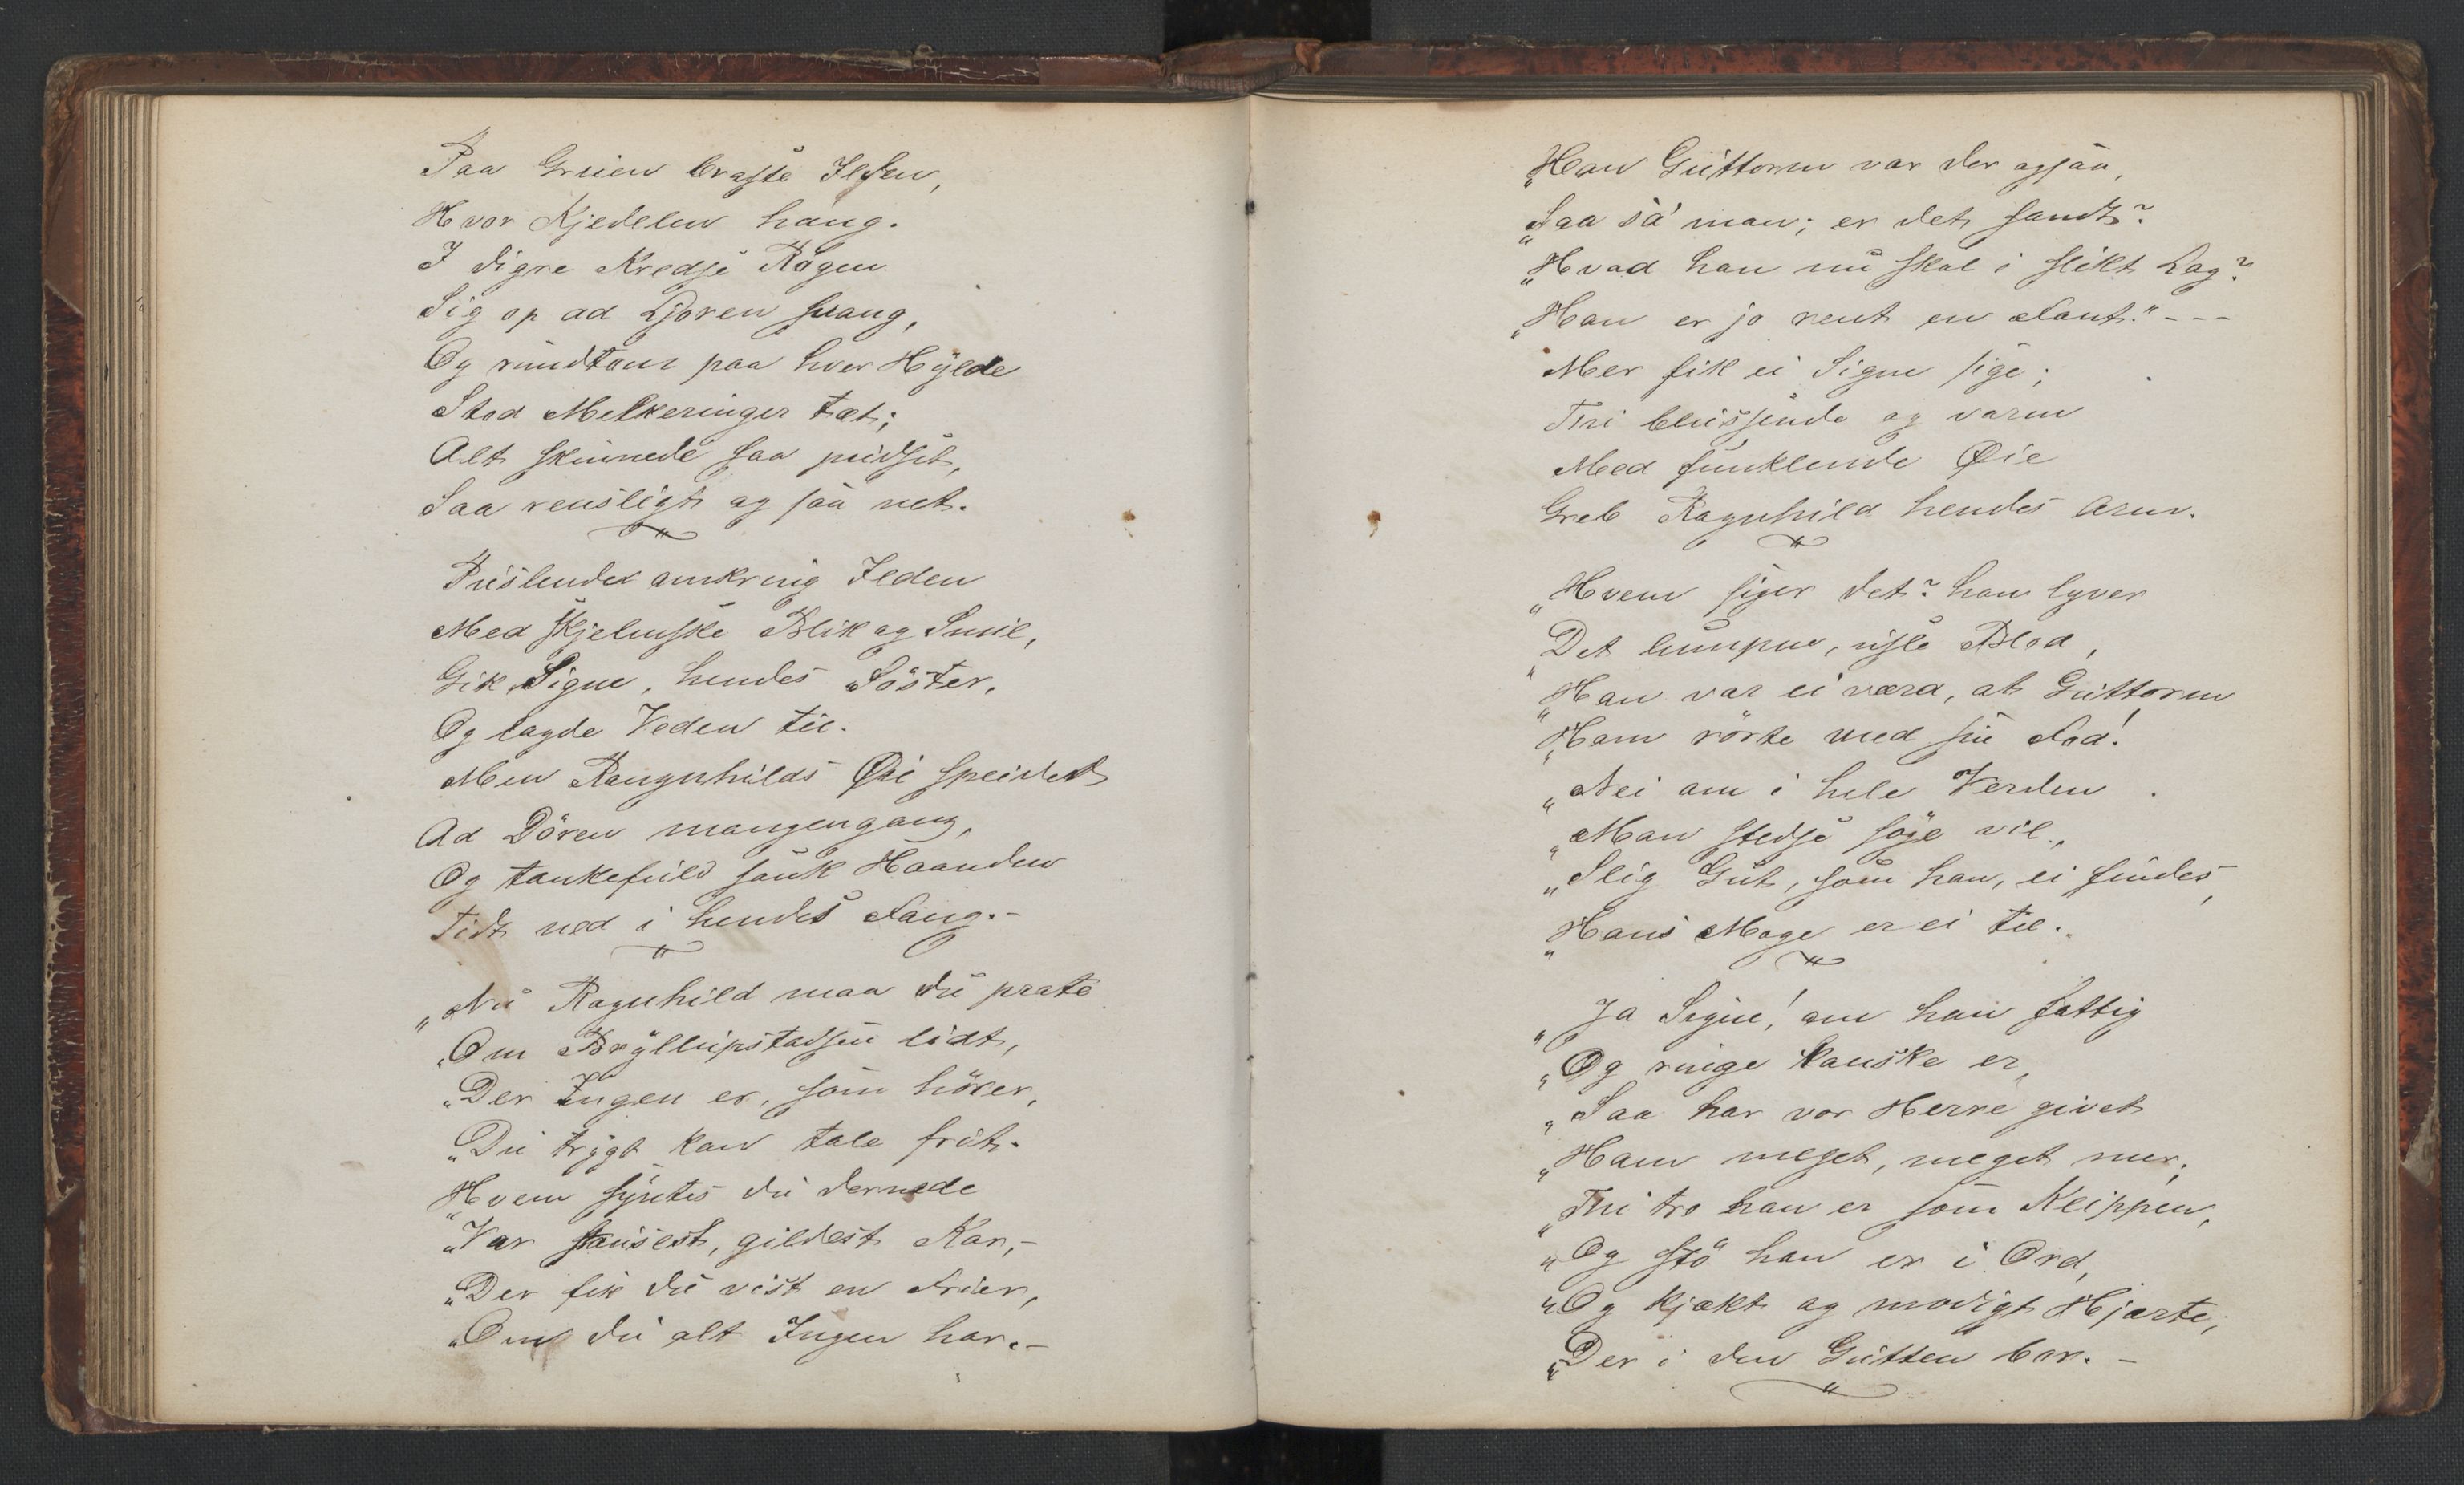 Paa Gruen braste Ilden,
Hvor Kjedelen hang.
I digre Kredse Røgen
Sig op ad Ljoren svang,
Og rundtom paa hver Hylde
Stod Melkeringer tæt;
Alt skinnede saa pudset,
Saa rensligt og saa net.
Puslende omkring Ilden
Med skjelmske Blik og Smil,
Gik Signe, hendes Söster,
Og lagde Veden til.
Men Rangnhilds Øie speided
Ad Dören mangengang,
Og tankefuld sank Haanden
Tidt ned i hendes Fang.-
„Nu Ragnhild maa du prate
„Om Bryllupstadsen lidt,
„Der Ingen er, som hörer,
„Du trygt kan tale frit.
„Hvem syntes du dernede
„Var stausest, gildest Kar,-
„Der fik du vist en Frier,
„Om du alt Ingen har.-
„Han Guttorm var der ogsaa,
„Saa sa' man; er det sandt?
„Hvad han nu skal i slikt Lag?
„Han er jo rent en Fant."---
Mer fik ei Signe sige;
Thi blussende og varm
Med funklende Øie
Greb Ragnhild hendes Arm.
„Hvem siger det? han lyver
„Det lumpne, usle Blod,
„Han var ei værd, at Guttorm
„Ham rörte med sin Fod!
„Nei om i hele Verden
„Man stedse söge vil,
„Slig Gut, som han, ei findes,
„Hans Mage er ei til.
„Ja Signe! om han fattig
„Og ringe kanske er,
„Saa har vor Herre givet
„Ham meget, meget mer;
„Thi tro han er som Klippen,
„Og stö han er i Ord,
„Og kjækt og modigt Hjerte,
„Der i den Gutten bor.-